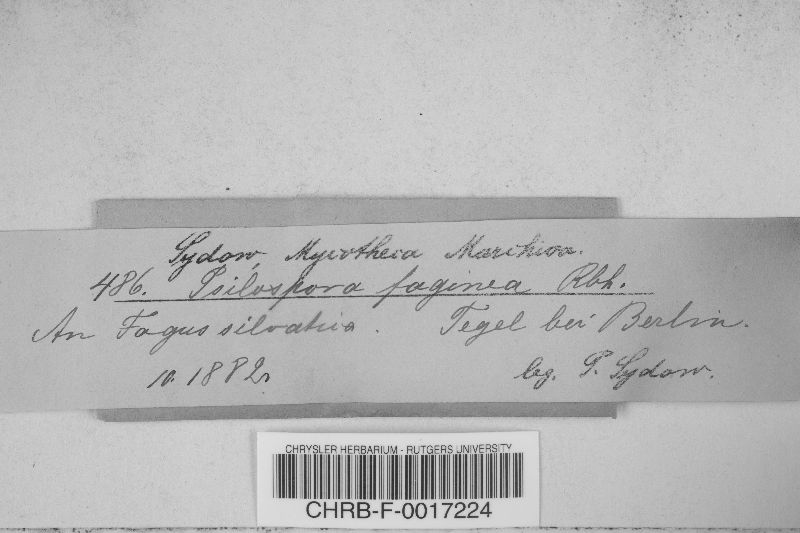 Sydow, Mycotheca Marchica.
486. Psilospora faginea Rbh.
An Fagus silvatica. Tegel bei Berlin.
10. 1882. leg. P. Sydow.
CHRYSLER HERBARIUM - RUTGERS UNIVERSITY
CHRB-F-0017224